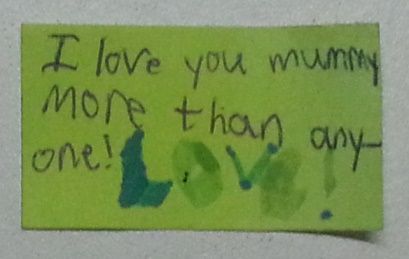 I love you mummy
more than any-
one! Love!